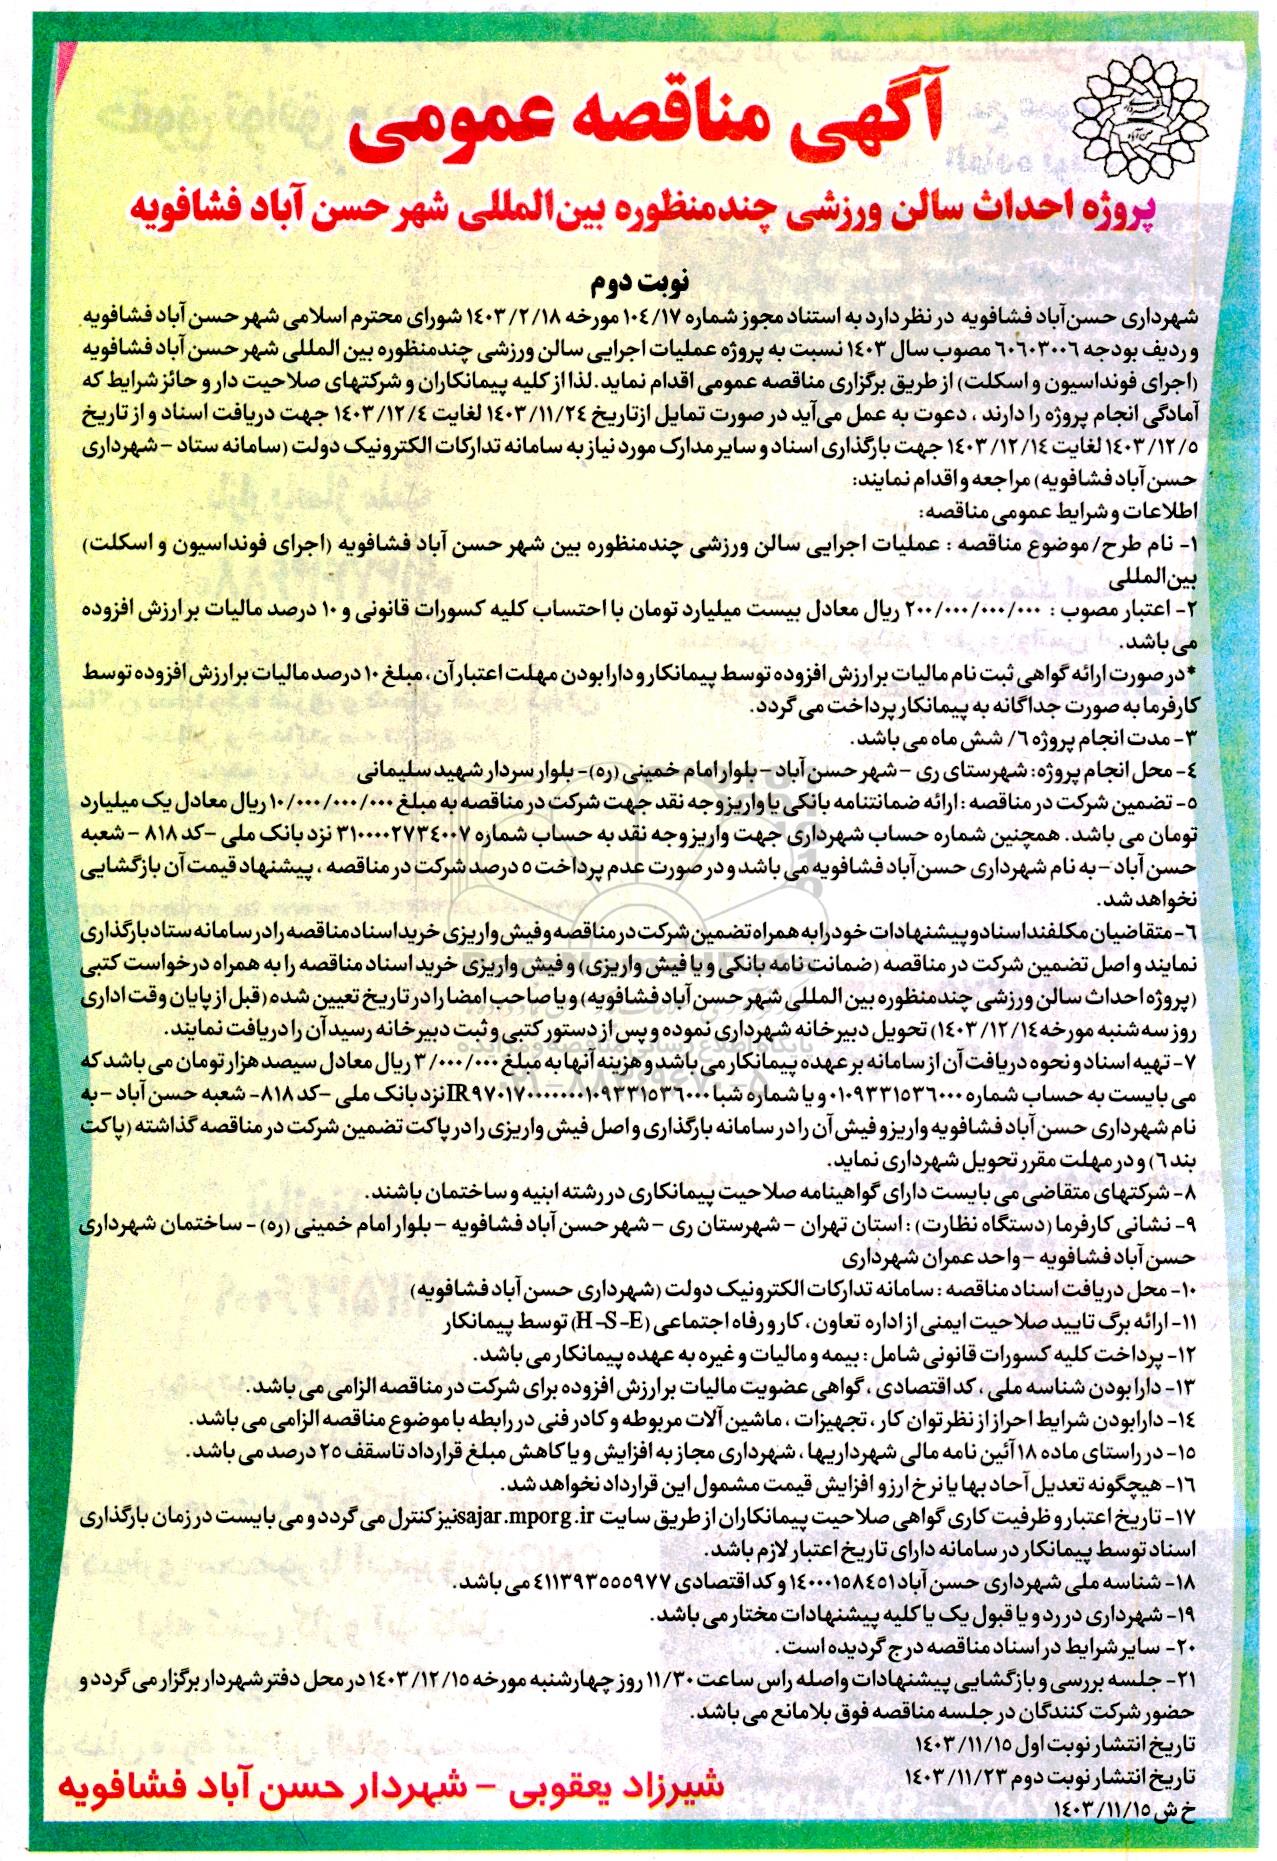 آگهی مناقصه عمومی
پروژه احداث سالن ورزشی چندمنظوره بین‌المللی شهر حسن آباد فشافویه
نوبت دوم
شهرداری حسن‌آباد فشافویه در نظر دارد به استناد مجوز شماره ۱۰۴/۱۷ مورخه ۱۴۰۳/۲/۱۸ شورای محترم اسلامی شهر حسن آباد فشافویه
و ردیف بودجه ۶۰۶۰۳۰۰۶ مصوب سال ۱۴۰۳ نسبت به پروژه عملیات اجرایی سالن ورزشی چندمنظوره بین المللی شهر حسن آباد فشافویه
(اجرای فونداسیون و اسکلت) از طریق برگزاری مناقصه عمومی اقدام نماید. لذا از کلیه پیمانکاران و شرکتهای صلاحیت دار و حائز شرایط که
آمادگی انجام پروژه را دارند ، دعوت به عمل می‌آید در صورت تمایل ازتاریخ ۱۴۰۳/۱۱/۲۴ لغایت ۱۴۰۳/۱۲/۴ جهت دریافت اسناد و از تاریخ
۱۴۰۳/۱۲/۵ لغایت ۱۴۰۳/۱۲/۱۴ جهت بارگذاری اسناد و سایر مدارک مورد نیاز به سامانه تدارکات الکترونیک دولت (سامانه ستاد - شهرداری
حسن آباد فشافویه) مراجعه و اقدام نمایند:
اطلاعات و شرایط عمومی مناقصه:
۱- نام طرح/ موضوع مناقصه : عملیات اجرایی سالن ورزشی چندمنظوره بین شهر حسن آباد فشافویه (اجرای فونداسیون و اسکلت)
بین‌المللی
۲- اعتبار مصوب : ۲۰۰/۰۰۰/۰۰۰/۰۰۰ ریال معادل بیست میلیارد تومان با احتساب کلیه کسورات قانونی و ۱۰ درصد مالیات بر ارزش افزوده
می باشد.
*در صورت ارائه گواهی ثبت نام مالیات بر ارزش افزوده توسط پیمانکار و دارا بودن مهلت اعتبار آن، مبلغ ۱۰ درصد مالیات بر ارزش افزوده توسط
کارفرما به صورت جداگانه به پیمانکار پرداخت می گردد.
۳- مدت انجام پروژه ۶/ شش ماه می باشد.
۴- محل انجام پروژه: شهرستای ری - شهر حسن آباد - بلوار امام خمینی (ره)- بلوار سردار شهید سلیمانی
۵- تضمین شرکت در مناقصه : ارائه ضمانتنامه بانکی یا واریز وجه نقد جهت شرکت در مناقصه به مبلغ ۱۰/۰۰۰/۰۰۰/۰۰۰ ریال معادل یک میلیارد
تومان می باشد. همچنین شماره حساب شهرداری جهت واریز وجه نقد به حساب شماره ۳۱۰۰۰۰۲۷۳۴۰۰۷ نزد بانک ملی - کد ۸۱۸ - شعبه
حسن آباد - به نام شهرداری حسن‌آباد فشافویه می باشد و در صورت عدم پرداخت ۵ درصد شرکت در مناقصه ، پیشنهاد قیمت آن بازگشایی
نخواهد شد.
۶- متقاضیان مکلفند اسناد و پیشنهادات خود را به همراه تضمین شرکت در مناقصه و فیش واریزی خرید اسناد مناقصه را در سامانه ستاد بارگذاری
نمایند و اصل تضمین شرکت در مناقصه (ضمانت نامه بانکی و یا فیش واریزی) و فیش واریزی خرید اسناد مناقصه را به همراه درخواست کتبی
(پروژه احداث سالن ورزشی چندمنظوره بین المللی شهر حسن آباد فشافویه) و یا صاحب امضا را در تاریخ تعیین شده (قبل از پایان وقت اداری
روز سه شنبه مورخه ۱۴۰۳/۱۲/۱۴) تحویل دبیرخانه شهرداری نموده و پس از دستور کتبی و ثبت دبیرخانه رسید آن را دریافت نمایند.
۷- تهیه اسناد و نحوه دریافت آن از سامانه بر عهده پیمانکار می باشد و هزینه آنها به مبلغ ۳/۰۰۰/۰۰۰ ریال معادل سیصد هزار تومان می باشد که
می بایست به حساب شماره ۰۱۰۹۳۳۱۵۳۶۰۰۰ و یا شماره شبا IR۹۷۰۱۷۰۰۰۰۰۰۰۱۰۹۳۳۱۵۳۶۰۰۰ نزد بانک ملی - کد ۸۱۸- شعبه حسن آباد - به
نام شهرداری حسن آباد فشافویه واریز و فیش آن را در سامانه بارگذاری و اصل فیش واریزی را در پاکت تضمین شرکت در مناقصه گذاشته (پاکت
بند ۶) و در مهلت مقرر تحویل شهرداری نماید.
۸- شرکتهای متقاضی می بایست دارای گواهینامه صلاحیت پیمانکاری در رشته ابنیه و ساختمان باشند.
۹- نشانی کارفرما (دستگاه نظارت) : استان تهران - شهرستان ری - شهر حسن آباد فشافویه - بلوار امام خمینی (ره) - ساختمان شهرداری
حسن آباد فشافویه - واحد عمران شهرداری
۱۰- محل دریافت اسناد مناقصه : سامانه تدارکات الکترونیک دولت (شهرداری حسن آباد فشافویه)
۱۱- ارائه برگ تایید صلاحیت ایمنی از اداره تعاون، کار و رفاه اجتماعی (H-S-E) توسط پیمانکار
۱۲- پرداخت کلیه کسورات قانونی شامل : بیمه و مالیات و غیره به عهده پیمانکار می باشد.
۱۳- دارا بودن شناسه ملی ، کد اقتصادی ، گواهی عضویت مالیات بر ارزش افزوده برای شرکت در مناقصه الزامی می باشد.
۱۴- دارابودن شرایط احراز از نظر توان کار ، تجهیزات ، ماشین آلات مربوطه و کادر فنی در رابطه با موضوع مناقصه الزامی می باشد.
۱۵- در راستای ماده ۱۸ آئین نامه مالی شهرداریها ، شهرداری مجاز به افزایش و یا کاهش مبلغ قرارداد تا سقف ۲۵ درصد می باشد.
۱۶- هیچگونه تعدیل آحاد بها یا نرخ ارز و افزایش قیمت مشمول این قرارداد نخواهد شد.
۱۷- تاریخ اعتبار و ظرفیت کاری گواهی صلاحیت پیمانکاران از طریق سایت sajar.mporg.ir نیز کنترل می گردد و می بایست در زمان بارگذاری
اسناد توسط پیمانکار در سامانه دارای تاریخ اعتبار لازم باشد.
۱۸- شناسه ملی شهرداری حسن آباد ۱۴۰۰۰۱۵۸۴۵۱ و کد اقتصادی ۴۱۱۳۹۳۵۵۵۹۷۷ می باشد.
۱۹- شهرداری در رد و یا قبول یک یا کلیه پیشنهادات مختار می باشد.
۲۰- سایر شرایط در اسناد مناقصه درج گردیده است.
۲۱- جلسه بررسی و بازگشایی پیشنهادات واصله راس ساعت ۱۱/۳۰ روز چهارشنبه مورخه ۱۴۰۳/۱۲/۱۵ در محل دفتر شهردار برگزار می گردد و
حضور شرکت کنندگان در جلسه مناقصه فوق بلامانع می باشد.
تاریخ انتشار نوبت اول ۱۴۰۳/۱۱/۱۵
تاریخ انتشار نوبت دوم ۱۴۰۳/۱۱/۲۳
خ ش ۱۴۰۳/۱۱/۱۵
شیرزاد یعقوبی - شهردار حسن آباد فشافویه